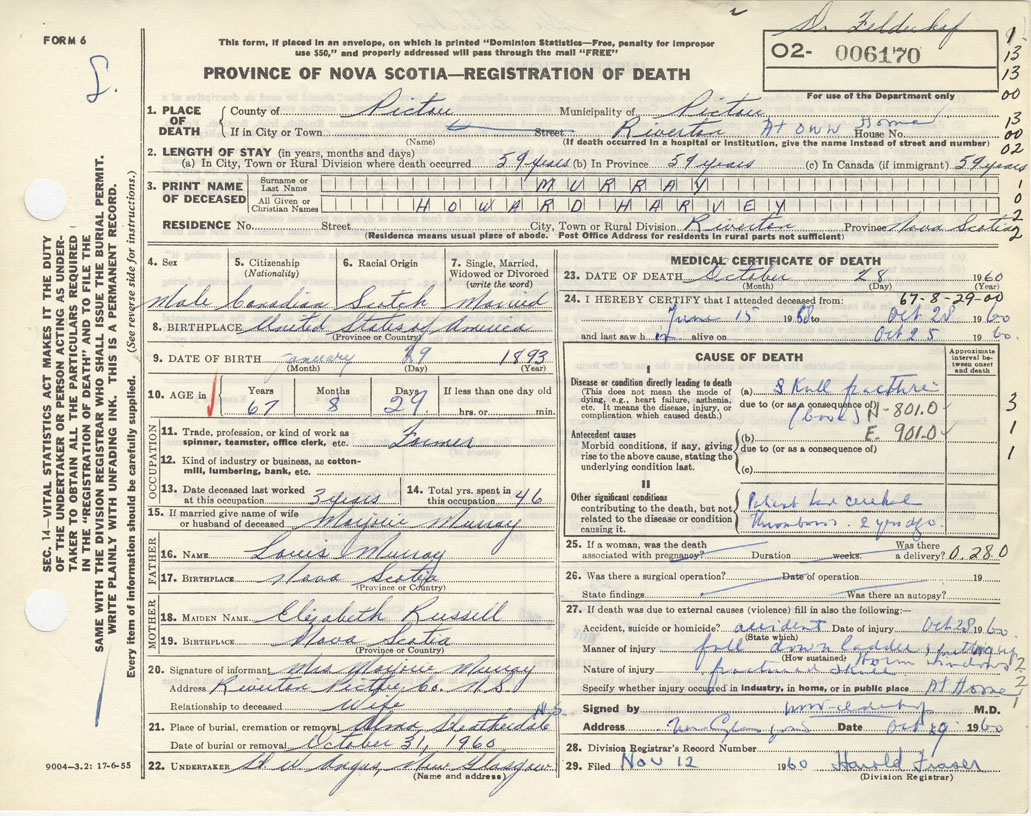 Dr. Felderhof
FORM 6
This form, if placed in an envelope, on which is printed "Dominion Statistics—Free, penalty for improper
use $50," and properly addressed will pass through the mail "FREE"
O2- 006170
PROVINCE OF NOVA SCOTIA—REGISTRATION OF DEATH
For use of the Department only
1. PLACE OF DEATH { County of Pictou Municipality of Pictou
If in City or Town Street Riverton At own Home House No.
(Name) (If death occurred in a hospital or institution, give the name instead of street and number)
2. LENGTH OF STAY (in years, months and days)
(a) In City, Town or Rural Division where death occurred 59 years (b) In Province 59 years (c) In Canada (if immigrant) 59 years
3. PRINT NAME OF DECEASED
Surname or Last Name MURRAY
All Given or Christian Names HOWARD HARVEY
RESIDENCE No. Street City, Town or Rural Division Riverton Province Nova Scotia
(Residence means usual place of abode. Post Office Address for residents in rural parts not sufficient)
4. Sex 5. Citizenship (Nationality) 6. Racial Origin 7. Single, Married, Widowed or Divorced (write the word)
Male Canadian Scotch Married
8. BIRTHPLACE United States of America
(Province or Country)
9. DATE OF BIRTH January 29 1893
(Month) (Day) (Year)
10. AGE in Years Months Days If less than one day old
67 8 29 hrs. or min.
OCCUPATION
11. Trade, profession, or kind of work as spinner, teamster, office clerk, etc. Farmer
12. Kind of industry or business, as cotton-mill, lumbering, bank, etc.
13. Date deceased last worked at this occupation 3 years 14. Total yrs. spent in this occupation 46
15. If married give name of wife or husband of deceased Marjorie Murray
FATHER
16. NAME Louis Murray
17. BIRTHPLACE Nova Scotia
(Province or Country)
MOTHER
18. MAIDEN NAME Elizabeth Russell
19. BIRTHPLACE Nova Scotia
(Province or Country)
20. Signature of informant Mrs Marjorie Murray
Address Riverton Pictou Co. N.S.
Relationship to deceased Wife
21. Place of burial, cremation or removal Alma N.S.
Date of burial or removal October 31, 1960
22. UNDERTAKER Angus, New Glasgow
(Name and address)
MEDICAL CERTIFICATE OF DEATH
23. DATE OF DEATH October 28 1960
(Month) (Day) (Year)
67-8-29-00
24. I HEREBY CERTIFY that I attended deceased from:
June 15 to Oct 28 1960
and last saw h alive on Oct 25 1960.
CAUSE OF DEATH
Approximate interval between onset and death
I
Disease or condition directly leading to death
(This does not mean the mode of dying, e.g., heart failure, asthenia, etc. It means the disease, injury, or complication which caused death.)
(a) Skull fracture
due to (or as a consequence of)
N-801.0
E. 901.0
Antecedent causes
Morbid conditions, if any, giving rise to the above cause, stating the underlying condition last.
(b)
due to (or as a consequence of)
(c)
II
Other significant conditions
contributing to the death, but not related to the disease or condition causing it.
Patient had cerebral
thrombosis 2 yrs ago.
25. If a woman, was the death associated with pregnancy? Duration weeks. Was there a delivery? 0.280
26. Was there a surgical operation? Date of operation 19
State findings Was there an autopsy?
27. If death was due to external causes (violence) fill in also the following:—
Accident, suicide or homicide? accident Date of injury Oct 28 1960
(State which)
Manner of injury fall down ladder putting up storm windows
(How sustained)
Nature of injury fractured skull
Specify whether injury occurred in industry, in home, or in public place At Home
Signed by M.D.
Address New Glasgow Date Oct 29 1960
28. Division Registrar's Record Number
29. Filed Nov 12 1960 Harold Fraser
(Division Registrar)
9004—3.2: 17-6-55
SEC. 14—VITAL STATISTICS ACT MAKES IT THE DUTY
OF THE UNDERTAKER OR PERSON ACTING AS UNDER-
TAKER TO OBTAIN ALL THE PARTICULARS REQUIRED
IN THE "REGISTRATION OF DEATH" AND TO FILE THE
SAME WITH THE DIVISION REGISTRAR WHO SHALL ISSUE THE BURIAL PERMIT.
WRITE PLAINLY WITH UNFADING INK. THIS IS A PERMANENT RECORD.
Every item of information should be carefully supplied. (See reverse side for instructions.)
1
13
13
00
13
00
02
1
0
2
2
3
1
1
2
2
1